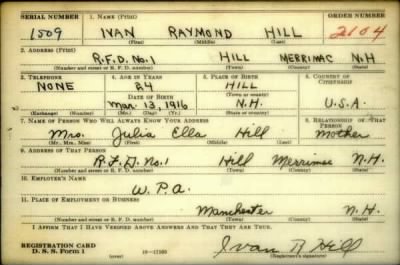 SERIAL NUMBER 1. NAME (Print) ORDER NUMBER
1509 IVAN RAYMOND HILL 2104
(First) (Middle) (Last)
2. ADDRESS (Print)
R.F.D. No. 1 HILL MERRIMAC N.H.
(Number and street or R. F. D. number) (Town) (County) (State)
3. TELEPHONE 4. AGE IN YEARS 5. PLACE OF BIRTH 6. COUNTRY OF CITIZENSHIP
NONE 24 HILL
DATE OF BIRTH (Town or county)
Mar. 13, 1916 N.H. U.S.A.
(Exchange) (Number) (Mo.) (Day) (Yr.) (State or country)
7. NAME OF PERSON WHO WILL ALWAYS KNOW YOUR ADDRESS 8. RELATIONSHIP OF THAT PERSON
Mrs. Julia Ella Hill Mother
(Mr., Mrs., Miss) (First) (Middle) (Last)
9. ADDRESS OF THAT PERSON
R.F.D. No. 1 Hill Merrimac N.H.
(Number and street or R. F. D. number) (Town) (County) (State)
10. EMPLOYER'S NAME
W.P.A.
11. PLACE OF EMPLOYMENT OR BUSINESS
Manchester N.H.
(Number and street or R. F. D. number) (Town) (County) (State)
I AFFIRM THAT I HAVE VERIFIED ABOVE ANSWERS AND THAT THEY ARE TRUE.
REGISTRATION CARD
D. S. S. Form 1 (over) Ivan R Hill
(Registrant's signature)